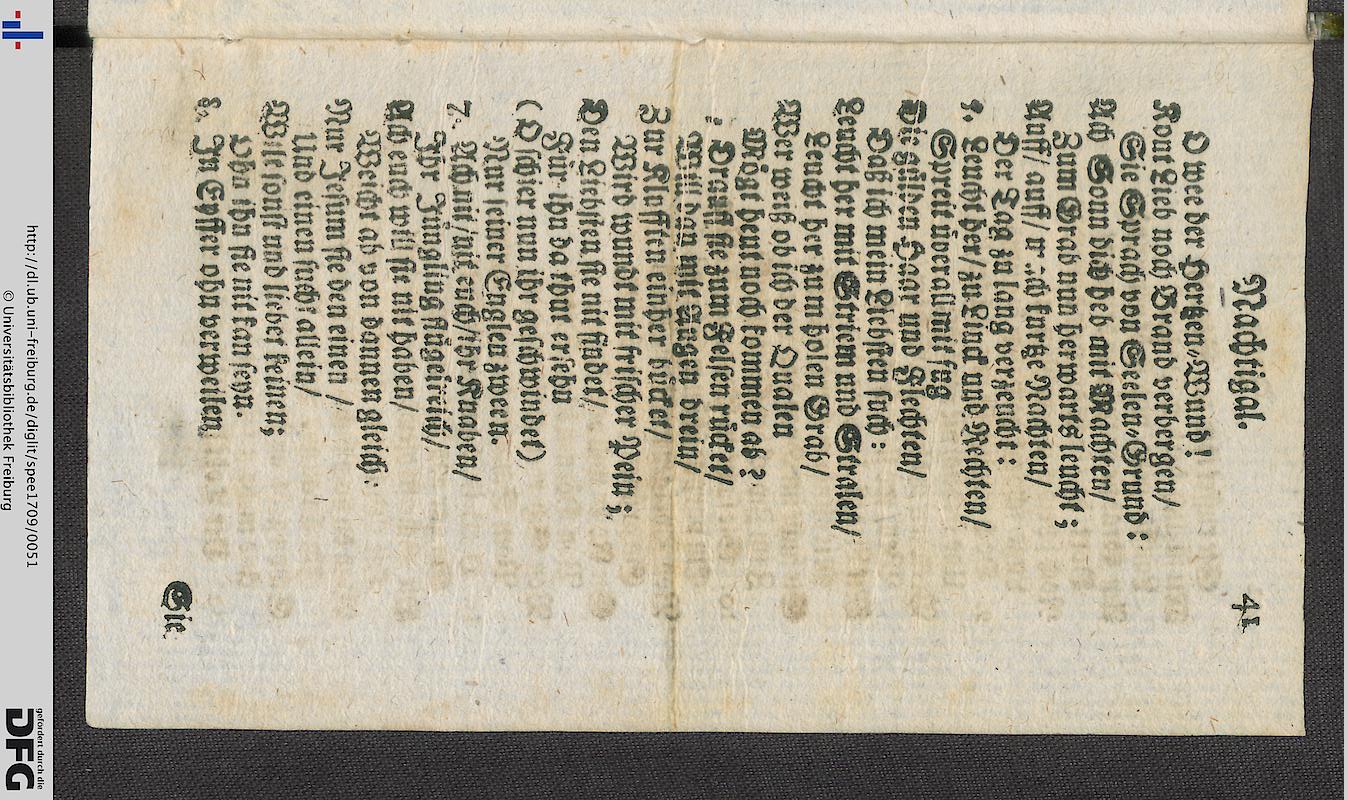 Nachtigal. 41
O wee der Hertzen-Wund!
Kont Lieb noch Brand verbergen/
Sie Sprach von Seelen-Grund:
Ach Sonn dich heb mit Machten/
Zum Grab nun herwarts leucht;
Auff/ auff/ kurtze Nachten/
Der Tag zu lang verzeucht:
Leucht her/ zu Linck und Rechten/
Spreit überall mit fug
Die gülden Haar und Flechten/
Daß ich mein Liebsten such:
Leucht her mit Striem und Stralen/
Leucht her zum holen Grab/
Wer weiß ob ich der Qualen
Mögt heut noch kommen ab?
Drauff sie zum Felsen rücket/
Will han mit Augen drein/
Zur Klufften ein her bücket/
Wird wund mit frischer Pein;
Den Liebsten sie nit findet/
Für ihn da thut ersehn
(O schier nun ihr geschwindet)
Nur seiner Englen zween.
7. Ach nit/ nit euch/ ihr Knaben/
Ihr Jüngling flügelreich/
Ach euch will sie nit haben/
Weicht ab von dannen gleich:
Nur Jesum sie den einen/
Und einen sucht allein/
Will sonst und lieber keinen;
Ohn ihn sie nit kan seyn.
8. In Eyffer ohn verweilen,
Sie
http://dl.ub.uni-freiburg.de/diglit/spee1709/0051
© Universitätsbibliothek Freiburg
gefördert durch die
DFG